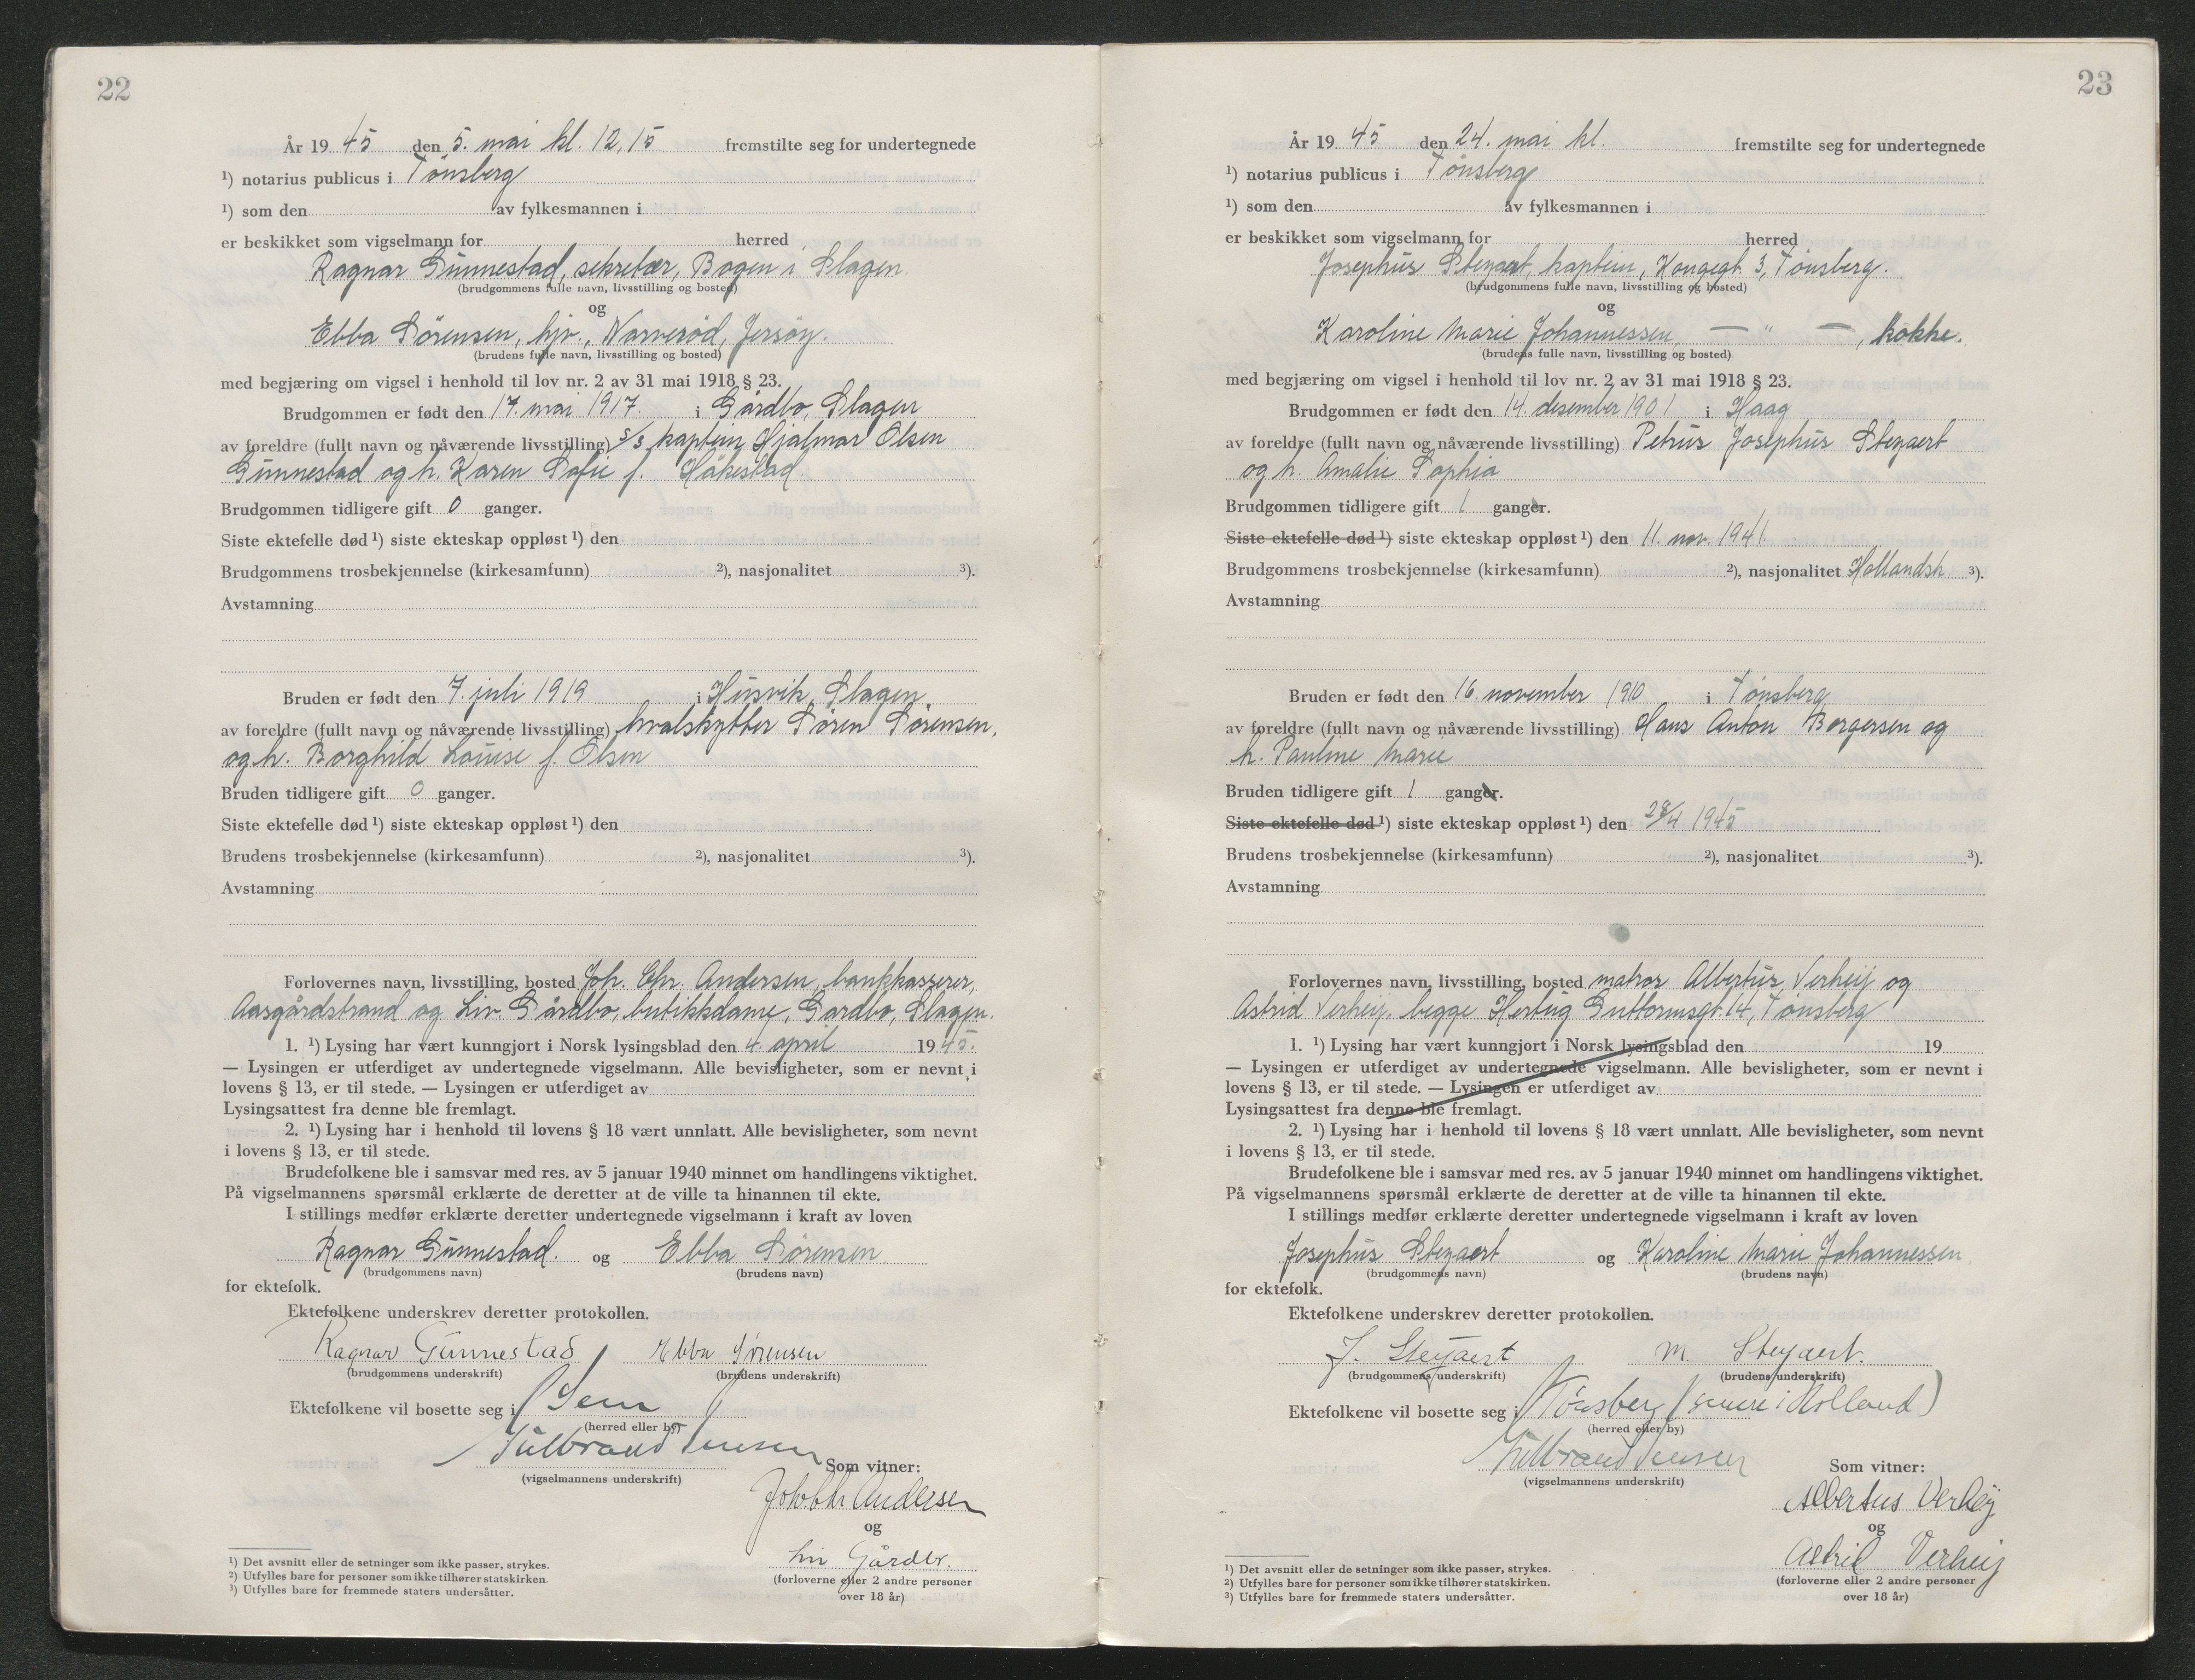 22
År 19 45 den 5. mai kl. 12,15 fremstilte seg for undertegnede
¹) notarius publicus i Tønsberg
¹) som den av fylkesmannen i
er beskikket som vigselmann for herred
Ragnar Gunnestad, sekretær, Bogen i Slagen.
(brudgommens fulle navn, livsstilling og bosted)
og
Ebba Sørensen, hjv., Narverød, Jersøy.
(brudens fulle navn, livsstilling og bosted)
med begjæring om vigsel i henhold til lov nr. 2 av 31 mai 1918 § 23.
Brudgommen er født den 17. mai 1917. i Gårdbo, Slagen
av foreldre (fullt navn og nåværende livsstilling) s/s kaptein Hjalmar Olsen
Gunnestad og h. Karen Sofie f. Håkestad.
Brudgommen tidligere gift 0 ganger.
Siste ektefelle død ¹) siste ekteskap oppløst ¹) den
Brudgommens trosbekjennelse (kirkesamfunn) ²), nasjonalitet ³).
Avstamning
Bruden er født den 7. juli 1919 i Husvik, Slagen
av foreldre (fullt navn og nåværende livsstilling) hvalskytter Søren Sørensen,
og h. Borghild Louise f. Olsen
Bruden tidligere gift 0 ganger.
Siste ektefelle død ¹) siste ekteskap oppløst ¹) den
Brudens trosbekjennelse (kirkesamfunn) ²), nasjonalitet ³).
Avstamning
Forlovernes navn, livsstilling, bosted Joh. Chr. Andersen, bankkasserer,
Aasgårdstrand og Liv Gårdbo, butikkdame, Gårdbo, Slagen.
1. ¹) Lysing har vært kunngjort i Norsk lysingsblad den 4. april 1945.
— Lysingen er utferdiget av undertegnede vigselmann. Alle bevisligheter, som er nevnt i
lovens § 13, er til stede. — Lysingen er utferdiget av
Lysingsattest fra denne ble fremlagt.
2. ¹) Lysing har i henhold til lovens § 18 vært unnlatt. Alle bevisligheter, som nevnt
i lovens § 13, er til stede.
Brudefolkene ble i samsvar med res. av 5 januar 1940 minnet om handlingens viktighet.
På vigselmannens spørsmål erklærte de deretter at de ville ta hinannen til ekte.
I stillings medfør erklærte deretter undertegnede vigselmann i kraft av loven
Ragnar Gunnestad. og Ebba Sørensen.
(brudgommens navn) (brudens navn)
for ektefolk.
Ektefolkene underskrev deretter protokollen.
Ragnar Gunnestad Ebba Sørensen
(brudgommens underskrift) (brudens underskrift)
Ektefolkene vil bosette seg i Sem
(herred eller by)
(vigselmannens underskrift)
Som vitner:
Joh Chr Andersen
og
Liv Gårdbo.
(forloverne eller 2 andre personer
over 18 år)
¹) Det avsnitt eller de setninger som ikke passer, strykes.
²) Utfylles bare for personer som ikke tilhører statskirken.
³) Utfylles bare for fremmede staters undersåtter.
23
År 19 45 den 24. mai kl. fremstilte seg for undertegnede
¹) notarius publicus i Tønsberg
¹) som den av fylkesmannen i
er beskikket som vigselmann for herred
Josephus Steyaert, kaptein, Kongegt. 3, Tønsberg.
(brudgommens fulle navn, livsstilling og bosted)
og
Karoline Marie Johannessen, — " —, kokke.
(brudens fulle navn, livsstilling og bosted)
med begjæring om vigsel i henhold til lov nr. 2 av 31 mai 1918 § 23.
Brudgommen er født den 14. desember 1901 i Haag
av foreldre (fullt navn og nåværende livsstilling) Petrus Josephus Steyaert
og h. Amalie Sophia
Brudgommen tidligere gift 1 ganger.
Siste ektefelle død ¹) siste ekteskap oppløst ¹) den 11. nov. 1941.
Brudgommens trosbekjennelse (kirkesamfunn) ²), nasjonalitet Hollandsk ³).
Avstamning
Bruden er født den 16. november 1910 i Tønsberg
av foreldre (fullt navn og nåværende livsstilling) Hans Anton Borgersen og
h. Pauline Marie
Bruden tidligere gift 1 ganger.
Siste ektefelle død ¹) siste ekteskap oppløst ¹) den 28/4 1945
Brudens trosbekjennelse (kirkesamfunn) ²), nasjonalitet ³).
Avstamning
Forlovernes navn, livsstilling, bosted matros Albertus Verheij og
Astrid Verheij, begge Hertug Guttormsgt. 14, Tønsberg
1. ¹) Lysing har vært kunngjort i Norsk lysingsblad den 19
— Lysingen er utferdiget av undertegnede vigselmann. Alle bevisligheter, som er nevnt i
lovens § 13, er til stede. — Lysingen er utferdiget av
Lysingsattest fra denne ble fremlagt.
2. ¹) Lysing har i henhold til lovens § 18 vært unnlatt. Alle bevisligheter, som nevnt
i lovens § 13, er til stede.
Brudefolkene ble i samsvar med res. av 5 januar 1940 minnet om handlingens viktighet.
På vigselmannens spørsmål erklærte de deretter at de ville ta hinannen til ekte.
I stillings medfør erklærte deretter undertegnede vigselmann i kraft av loven
Josephus Steyaert og Karoline Marie Johannessen.
(brudgommens navn) (brudens navn)
for ektefolk.
Ektefolkene underskrev deretter protokollen.
J. Steyaert M. Steyaert.
(brudgommens underskrift) (brudens underskrift)
Ektefolkene vil bosette seg i Tönsberg (senere i Holland)
(herred eller by)
(vigselmannens underskrift)
Som vitner:
Albertus Verheij
og
Astrid Verheij
(forloverne eller 2 andre personer
over 18 år)
¹) Det avsnitt eller de setninger som ikke passer, strykes.
²) Utfylles bare for personer som ikke tilhører statskirken.
³) Utfylles bare for fremmede staters undersåtter.